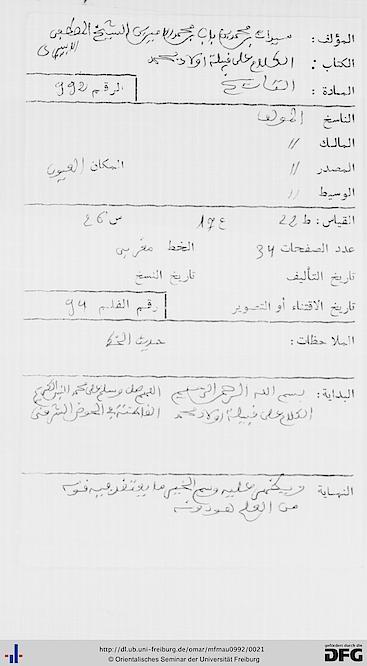 المؤلف: سيدات بن محمد بن باب بن محمد الأمين بن الشيخ المصطفى
الكتاب: الكلام على قبيلة أولاد محمد
المادة: التاريخ الرقم 992
الناسخ المؤلف
المالك //
المصدر // المكان العيون
الوسيط //
القياس: ط 22 ع 17 س 26
عدد الصفحات 34 الخط مغربي
تاريخ التأليف تاريخ النسخ
تاريخ الاقتناء أو التصوير رقم الفلم 94
الملاحظات: حديث الخط
البداية: بسم الله الرحمن الرحيم اللهم صل وسلم على محمد النبي الكريم
الكلام على قبيلة أولاد محمد القاطنة في الحوض الشرقي
النهاية ما يعتقد فيه قوته
من
http://dl.ub.uni-freiburg.de/omar/mfmau0992/0021
© Orientalisches Seminar der Universität Freiburg
gefördert durch die
DFG